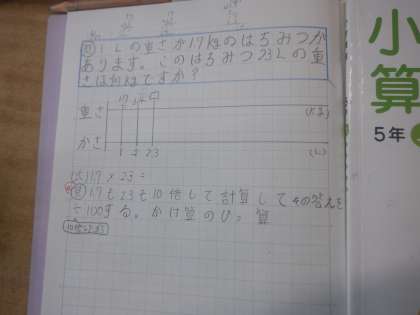 問 1Lの重さが1.7kgのはちみつが
あります。このはちみつ2.3Lの重
さは何kgですか？
重さ
(kg)
かさ
1 2 2.3
(L)
(式)1.7×2.3=
1.7も2.3も10倍して計算してその答えを
÷100する。かけ算のひっ算
小
算
5年